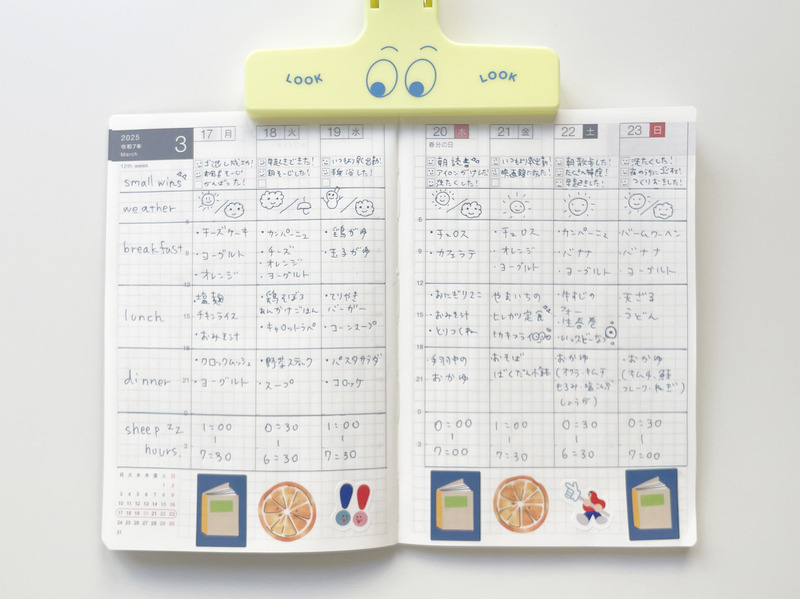 LOOK LOOK
2025
令和7年
March
3
12th week
17 月
18 火
19 水
20 木
春分の日
21 金
22 土
23 日
small wins
がんばった!
朝読書
いつもより早起き出勤!
アイロンがけした!
洗たくした!
朝散歩した!
早起きした!
洗たくした!
つくりおきした!
weather
breakfast
・チーズケーキ
・ヨーグルト
・オレンジ
・カンパーニュ
・チーズ
オレンジ
・ヨーグルト
・鶏がゆ
・玉子がゆ
・チュロス
・カフェラテ
・チュロス
・オレンジ
・ヨーグルト
・カンパーニュ
・バナナ
・ヨーグルト
・バームクーヘン
・バナナ
・ヨーグルト
lunch
・塩麹
チキンライス
・おみそ汁
・鶏そぼろ
あんかけごはん
・キャロットラペ
・てりやき
バーガー
・コーンスープ
・おにぎり2こ
・おみそ汁
・とりつくね
やまいちの
ヒレカツ定食
+カキフライ
・牛すじの
フォー
・生春巻
天ざる
うどん
dinner
・クロックムッシュ
・ヨーグルト
・野菜スティック
・スープ
・パスタサラダ
・コロッケ
手羽中の
おかゆ
おそば
ばくだん小鉢
おかゆ
(オクラ・キムチ
しょうが)
・おかゆ
(キムチ、鮭
フレーク・ねぎ)
sheep zz
hours.
1:00
7:30
0:30
6:30
1:00
7:30
0:00
7:00
1:00
7:30
0:30
6:30
0:30
7:00
月 火 水 木 金 土 日
1 2
3 4 5 6 7 8 9
10 11 12 13 14 15 16
17 18 19 20 21 22 23
24 25 26 27 28 29 30
31